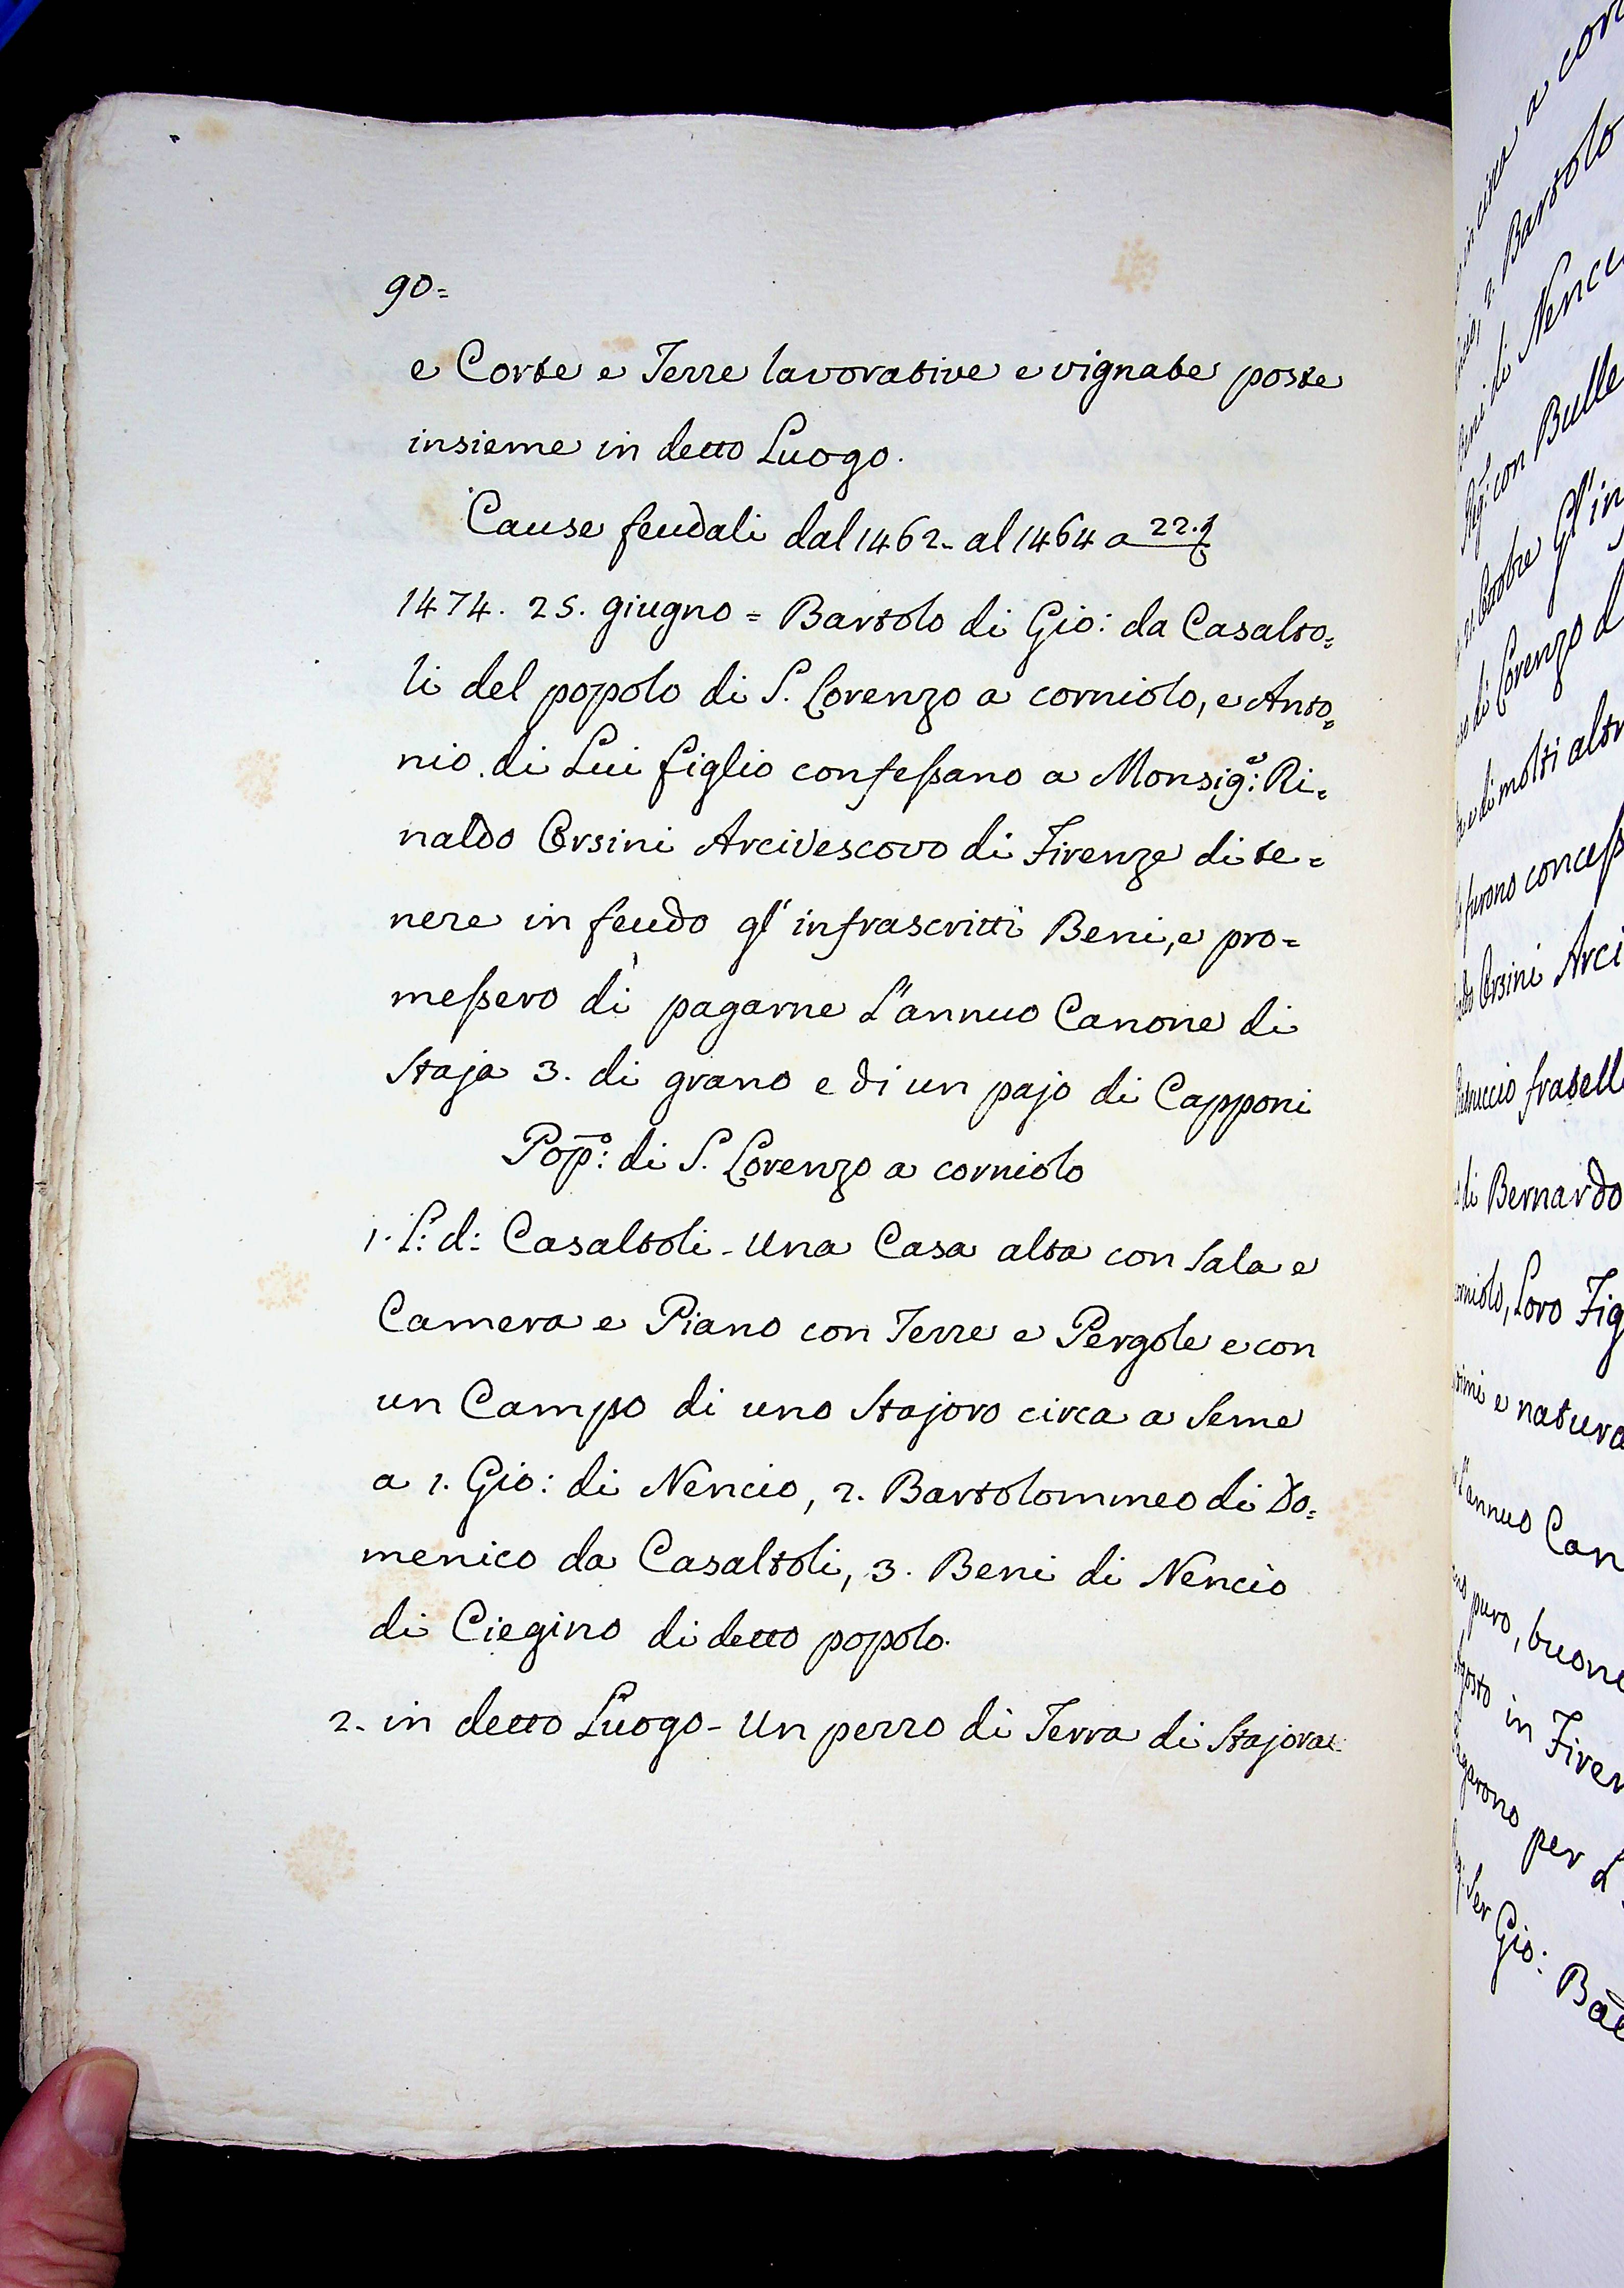 90=
e Corte e Terre lavorative e vignate poste
insieme in detto Luogo.
Cause feudali dal 1462. al 1464 a 22.
1474. 25. giugno = Bartolo di Gio: da Casalto=
li del popolo di S. Lorenzo a corniolo, e Anto=
nio di Lui figlio confeßano a Monsig.e: Ri=
naldo Orsini Arcivescovo di Firenze di te=
nere in feudo gl' infrascritti Beni, e pro=
meßero di pagarne L'annuo Canone di
Staja 3. di grano e di un pajo di Capponi
Pop.o: di S. Lorenzo a corniolo
1. L: d: Casaltoli - Una Casa alta con Sala e
Camera e Piano con Terre e Pergole e con
un Campo di uno Stajoro circa a Seme
a 1. Gio: di Nencio, 2. Bartolommeo di Do=
menico da Casaltoli, 3. Beni di Nencio
di Ciegino di detto popolo.
2. in detto Luogo - Un pezzo di Terra di Stajora
a
2. Bartolo
di Nenci
con Bulle
Ottobre Gl'in
di Lorenzo d
e di molti altr
furono conceß
Orsini Arci
fratell
di Bernardo
Loro Fig
e natura
L'annuo Can
puro, buono
Agosto in Firen
pagarono per L
Ser Gio: Ba